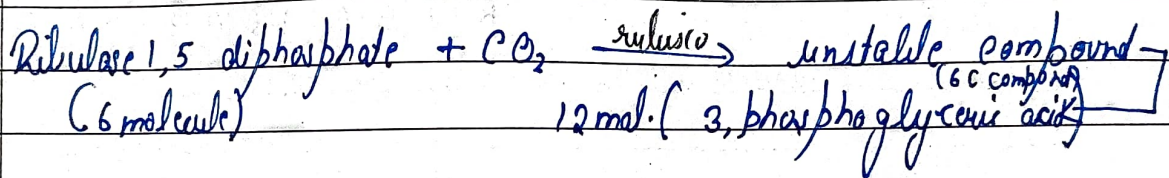 Ribulose 1,5 diphosphate + CO₂ rubisco → unstable compound
(6C compond)
(6 molecule) 12 mol. ( 3, phosphoglyceric acid)